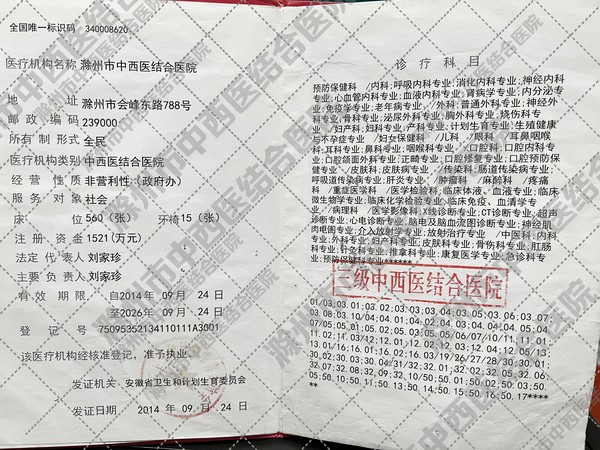 全国唯一标识码 340008620
医疗机构名称 滁州市中西医结合医院
地 址 滁州市会峰东路788号
邮 政 编 码 239000
所 有 制 形 式 全民
医疗机构类别 中西医结合医院
经 营 性 质 非营利性（政府办）
服 务 对 象 社会
床 位 560（张） 牙椅15（张）
注 册 资 金 1521（万元）
法 定 代 表 人 刘家珍
主 要 负 责 人 刘家珍
有 效 期 限 自2014年 09月 24日
至2026年 09月 23日
登 记 号 75095352134110111A3001
该医疗机构经核准登记，准予执业。
发证机关 安徽省卫生和计划生育委员会
发证日期 2014 年 09 月 24 日
诊 疗 科 目
预防保健科 /内科;呼吸内科专业;消化内科专业;神经内科
专业;心血管内科专业;血液内科专业;肾病学专业;内分泌专
业;免疫学专业;老年病专业; /外科;普通外科专业;神经外
科专业;骨科专业;泌尿外科专业;胸外科专业;烧伤科专
业 /妇产科;妇科专业;产科专业;计划生育专业;生殖健康
与不孕症专业 /妇女保健科 /儿科 /眼科 /耳鼻咽喉
科;耳科专业;鼻科专业;咽喉科专业 /口腔科;口腔内科专
业;口腔颌面外科专业;正畸专业;口腔修复专业;口腔预防保
健专业 /皮肤科;皮肤病专业 /传染科;肠道传染病专业;
呼吸道传染病专业;肝炎专业 /肿瘤科 /麻醉科 /疼痛
科 /重症医学科 /医学检验科;临床体液、血液专业;临床
微生物学专业;临床化学检验专业;临床免疫、血清学专
业 /病理科 /医学影像科;X线诊断专业;CT诊断专业;超声
诊断专业;心电诊断专业;脑电及脑血流图诊断专业;神经肌
肉电图专业;介入放射学专业;放射治疗专业 /中医科;内科
专业;外科专业;妇产科专业;皮肤科专业;骨伤科专业;肛肠
科专业;针灸科专业;推拿科专业;康复医学专业;急诊科专
业;预防保健科专业******
三级中西医结合医院